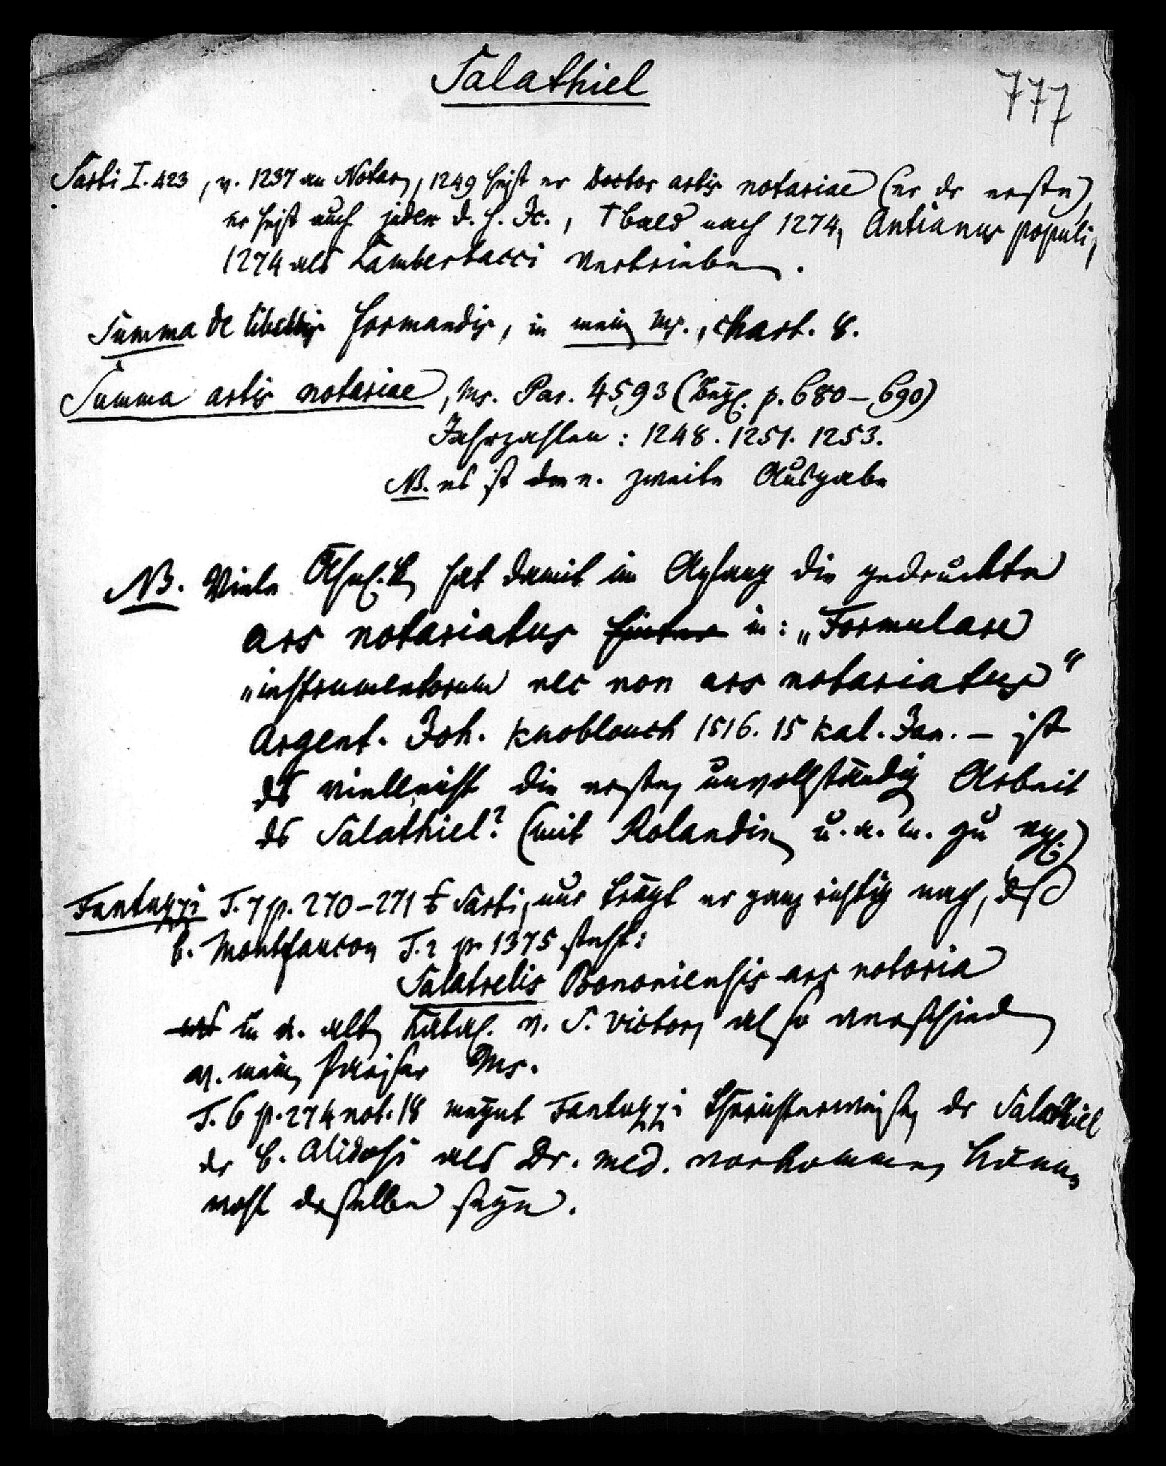 Salathiel
777
Sarti I. 423, v. 1237 an Notar, 1249 heißt er Doctor artis notariae (er der erste),
er heißt auch jeder d. h. Jc., † bald nach 1274, Antianus populi,
1274 als Lambertacci vertrieben.
Summa de libellis formandis, in mein Ms., chart. 8.
Summa artis notariae, Ms. Par. 4593 ( p. 680–690)
Jahrzahlen: 1248. 1251. 1253.
NB. es ist die zweite Ausgabe
NB. Viele hat damit im Anfang die gedruckte
ars notariatus in: „Formulare
„instrumentorum nec non ars notariatus“
Argent. Joh. Knoblouch 1516. 15 kal. Jan. – ist
das vielleicht die erste, unvollständig Arbeit
des Salathiel? (mit Rolandin u. a. m. zu vgl.)
Fantuzzi T. 7 p. 270–271 Sarti, nur trägt er ganz richtig nach, daß
b. Montfaucon T. 2 p. 1375 steht:
Salatrelis Bononiensis ars notoria
in d. alt Catal. v. S. Victor, also verschied
v. mein Pariser Ms.
T. 6 p. 274 not. 18 meynt Fantuzzi der Salathiel
der b. Alidosi als Dr. med. vorkomme, könne
wohl derselbe seyn.